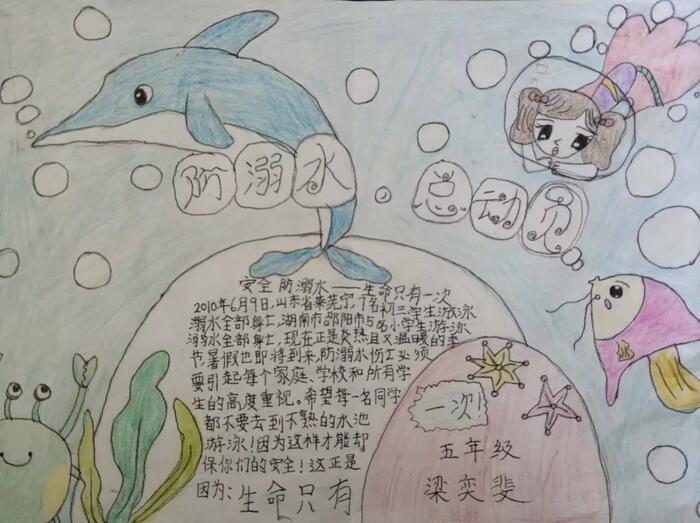 防溺水
总动员
安全防溺水——生命只有一次
2010年6月9日,山东省莱芜宁7名初三学生游泳
溺水全部身亡,湖南市邵阳市5名小学生游泳
溺水全部身亡,现在正是炎热且又温暖的季
节,暑假也即将到来,防溺水伤亡必须
要引起每个家庭、学校和所有学
生的高度重视。希望每一名同学
都不要去到不熟的水池
游泳!因为这样才能却
保你们的安全!这正是
因为:生命只有
一次!
五年级
梁奕斐